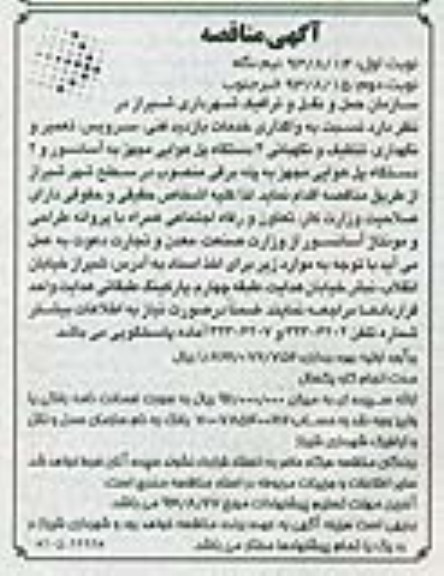 آگهی مناقصه
نوبت اول: ۹۳/۸/۱۳ نیم نگاه
نوبت دوم: ۹۳/۸/۱۵ خبر جنوب
سازمان حمل و نقل و ترافیک شهرداری شیراز در
نظر دارد نسبت به واگذاری خدمات بازدید فنی، سرویس، تعمیر و
نگهداری، تنظیف و نگهبانی ۳ دستگاه پل هوایی مجهز به آسانسور و ۲
دستگاه پل هوایی مجهز به پله برقی منصوب در سطح شهر شیراز
از طریق مناقصه اقدام نماید. لذا کلیه اشخاص حقیقی و حقوقی دارای
صلاحیت وزارت کار، تعاون و رفاه اجتماعی همراه با پروانه طراحی
و مونتاژ آسانسور از وزارت صنعت، معدن و تجارت دعوت به عمل
می آید با توجه به موارد زیر برای اخذ اسناد به آدرس: شیراز خیابان
انقلاب نبش خیابان هدایت طبقه چهارم پارکینگ طبقاتی هدایت واحد
قراردادها مراجعه نمایند. ضمناً در صورت نیاز به اطلاعات بیشتر
شماره تلفن و آماده پاسخگویی می باشد.
برآورد اولیه ریال
مدت انجام کار: یکسال
ارائه سپرده ای به میزان ریال به صورت ضمانت نامه بانکی یا
واریز وجه نقد به حساب بانک به نام سازمان حمل و نقل
و ترافیک شهرداری شیراز
برندگان مناقصه هرگاه حاضر به انعقاد قرارداد نشوند سپرده آنان ضبط خواهد شد.
سایر اطلاعات و جزئیات مربوطه در اسناد مناقصه مندرج است.
آخرین مهلت تسلیم پیشنهادات مورخ می باشد.
بدیهی است هزینه آگهی به عهده برنده مناقصه خواهد بود و شهرداری شیراز در
رد یک یا تمام پیشنهادها مختار می باشد.